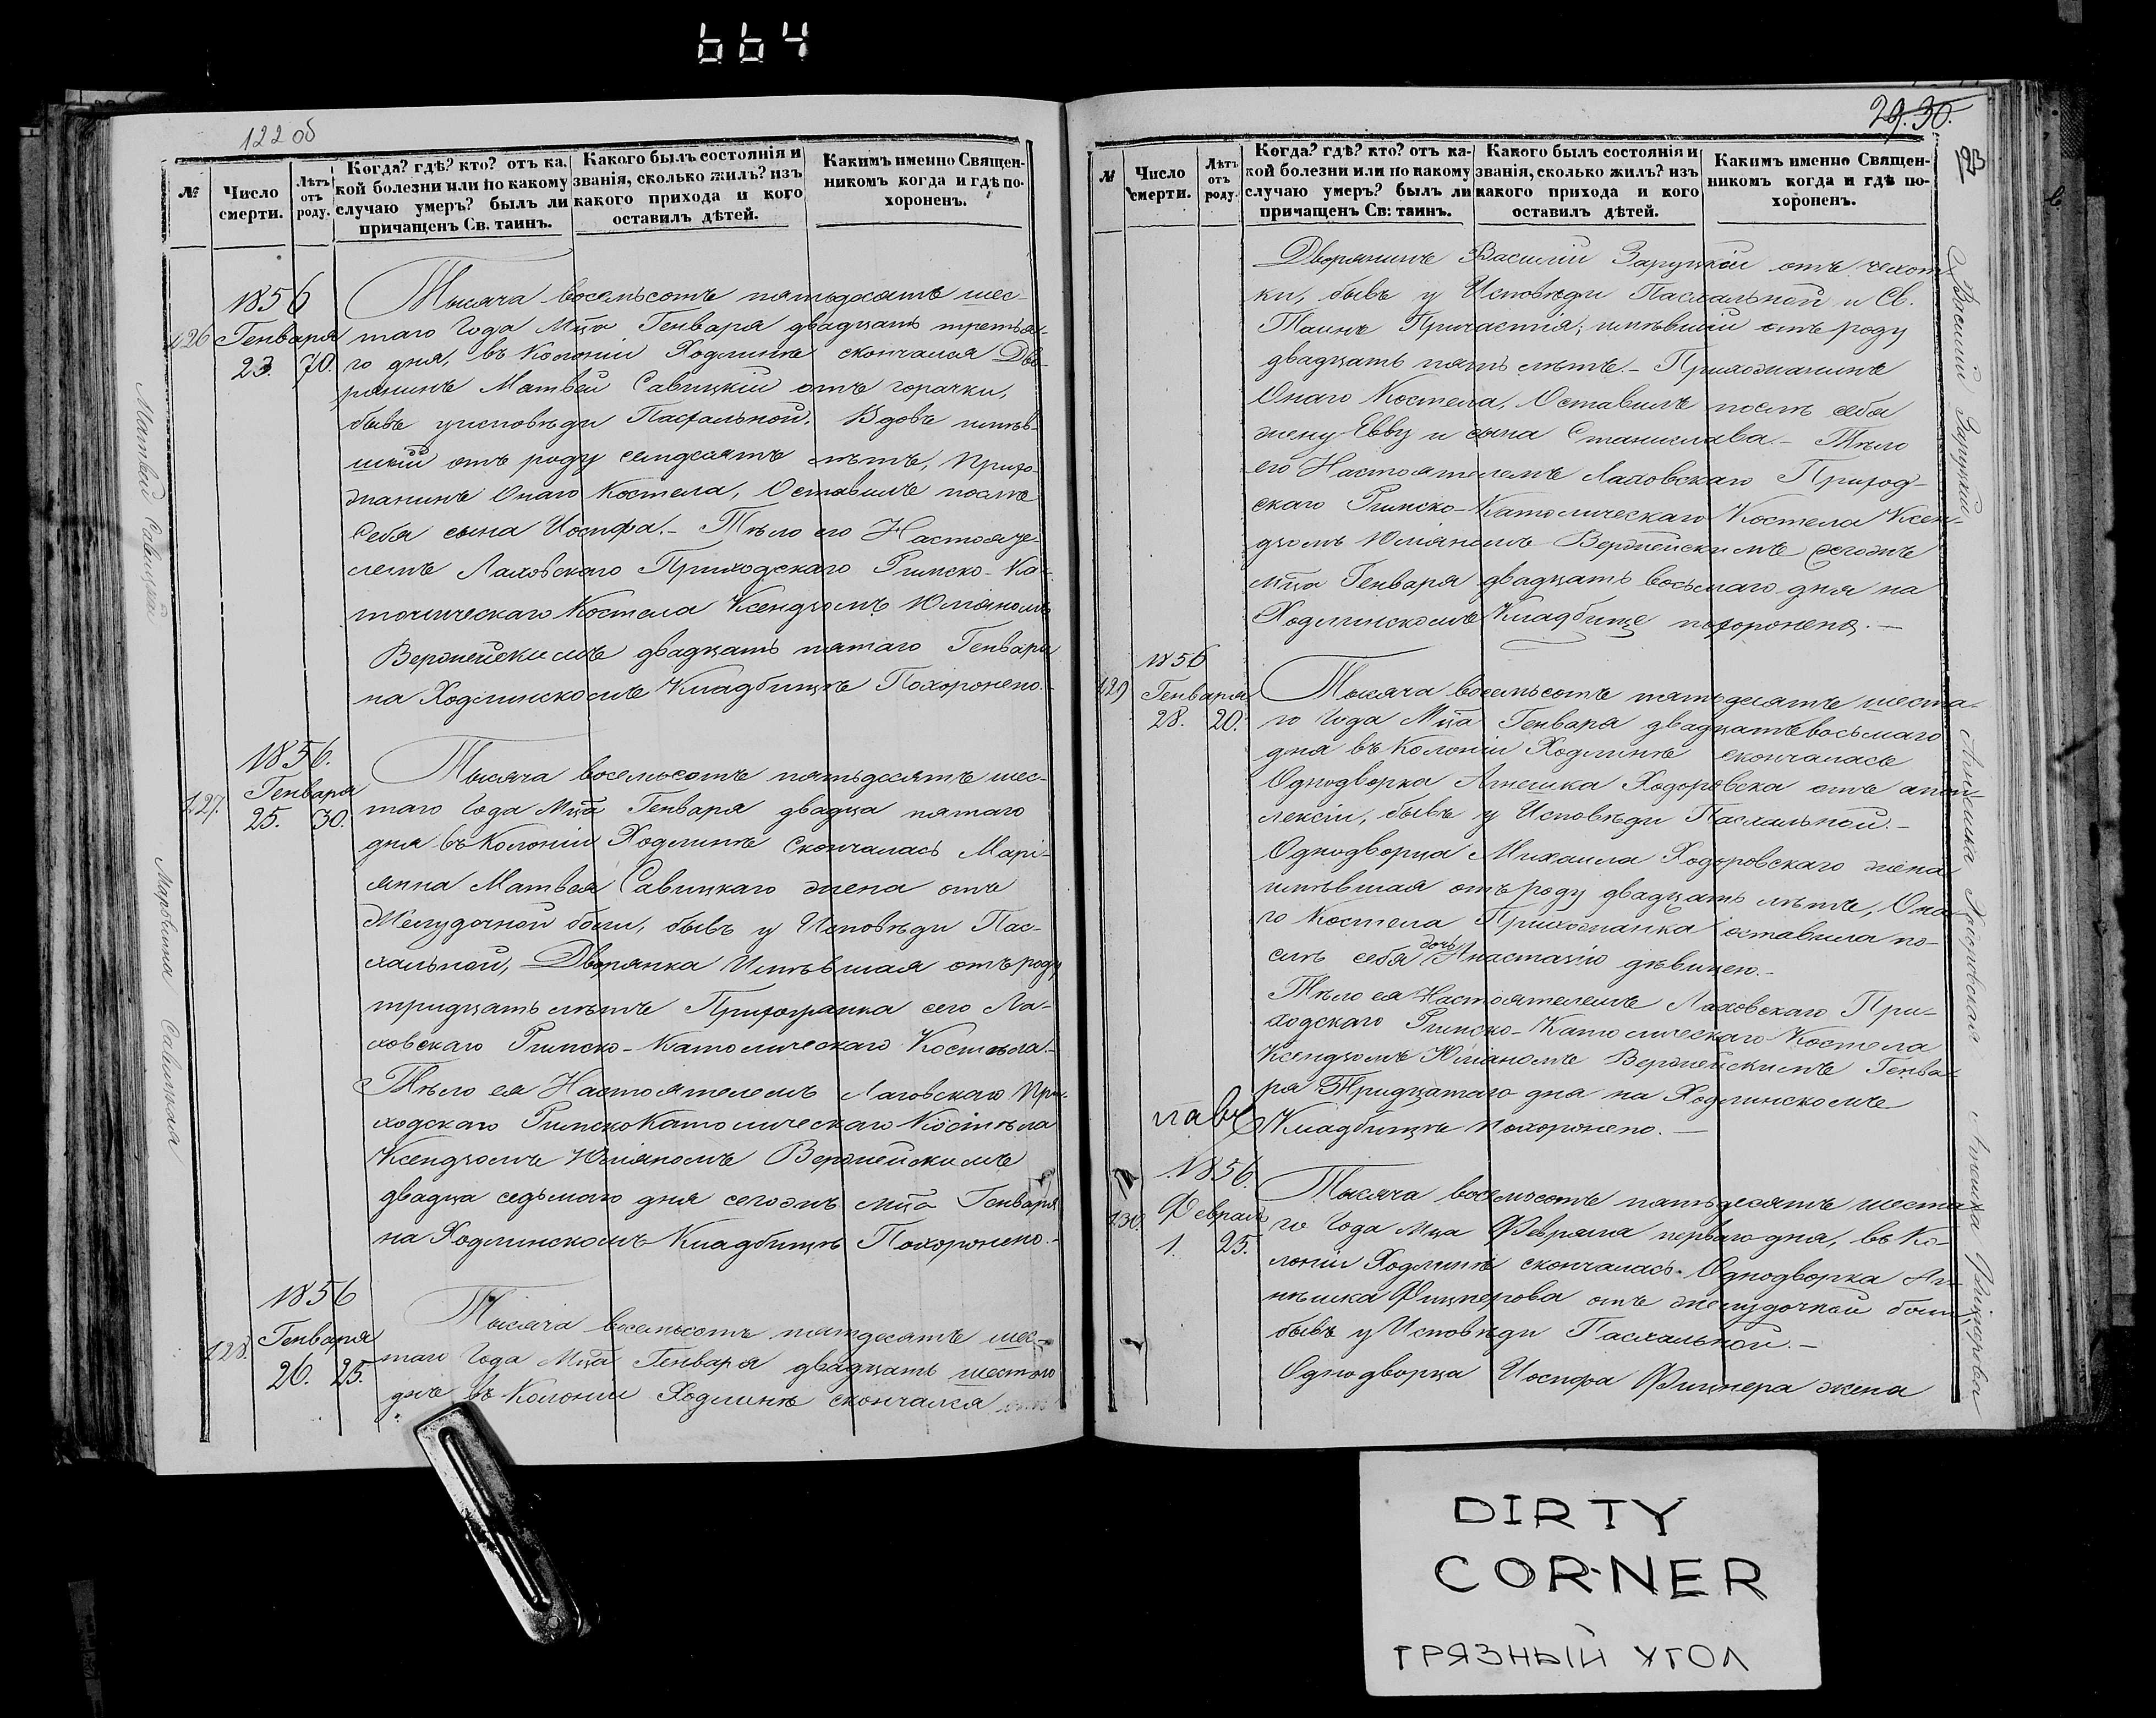 664
122 об
№
Число смерти.
Лѣтъ отъ роду.
Когда? гдѣ? кто? отъ ка-
кой болезни или по какому
случаю умеръ? былъ ли
причащенъ Св. таинъ.
Какого былъ состоянія и
званія, сколько жилъ? изъ
какого прихода и кого
оставилъ дѣтей.
Какимъ именно Священ-
никомъ когда и гдѣ по-
хороненъ.
126
1856
Генваря
23. 70.
Матвѣй Савицкій
Тысяча восемьсотъ пятьдесятъ шес-
таго Года Мца Генваря двадцать третья-
го дня, въ Колоніи Ходлинѣ скончался Дво-
рянинъ Матвѣй Савицкій отъ горачки,
бывъ уисповѣди Пасхальной. Вдовъ имѣв-
шый отъ роду семдсятъ лѣтъ, Прихо-
жанинъ Онаго Костела, Оставилъ послѣ
Себя сына Иосифа. - Тѣло его Настояте-
лемъ Лаховскаго Приходскаго Римско-Ка-
толическаго Костела Ксендзомъ Юліяномъ
Вержейскимъ двадцать пятаго Генваря
на Ходлинскомъ Кладбищѣ Похоронено. -
127.
1856.
Генваря
25. 30.
Марьянна Савицкая
Тысяча восемьсотъ пятьдесятъ шес-
таго Года Мца Генваря двадца пятаго
дня въ Колоніи Ходлинѣ Скончалась Марі-
янна Матвѣя Савицкаго жена отъ
Желудочной боли, бывъ у Исповѣди Пас-
хальной, Дворянка Имѣвшая отъ роду
тридцать лѣтъ Прихожанка сего Ла-
ховскаго Римско-Католическаго Костела. -
Тѣло ея Настоятелемъ Лаховскаго При-
ходскаго РимскоКатолическаго Костѣла
Ксендзомъ Юліяномъ Вержейскимъ
двадца седьмого дня сегожъ мца Генваря
на Ходлинскомъ Кладбищѣ Похоронено. -
128.
1856
Генваря
26. 25.
Тысяча восемьсотъ пятдесятъ шес-
таго Года Мца Генваря двадцать шестого
дня въ Колоніи Ходлинѣ скончался
29. 30.
№
Число смерти.
Лѣтъ отъ роду.
Когда? гдѣ? кто? отъ ка-
кой болезни или по какому
случаю умеръ? былъ ли
причащенъ Св: таинъ.
Какого былъ состоянія и
званія, сколько жилъ? изъ
какого прихода и кого
оставилъ дѣтей.
Какимъ именно Священ-
никомъ когда и гдѣ по-
хороненъ.
Василій Заруцкій
Дворянинъ Василій Заруцкій отъ чехот-
ки, бывъ у Исповѣди Пасхальной и Св.
Таинъ Причастія; имѣвшій отъ роду
двадцать пять лѣтъ. - Прихожанинъ
Онаго Костела, Оставилъ послѣ себя
жену Евву и сына Станислава. - Тѣло
его Настоятелемъ Лаховскаго Приход-
скаго Римско-Католическаго Костела Ксен-
дзомъ Юліяномъ Вержейскимъ Сегожъ
мца Генваря двадцать восьмаго дня на
Ходлинскомъ Кладбище похоронено. -
129
1856
Генваря
28. 20.
Агнешка
Тысяча восемьсотъ пятьдесятъ шеста-
го Года Мца Генваря двадцатьвосьмаго
дня въ Колоніи Ходлинѣ скончалась
Однодворка Агнешка Ходоровска отъ апоп-
лексіи, бывъ у Исповѣди Пасхальной. -
Однодворца Михаила Ходоровскаго жена
имѣвшая отъ роду двадцать лѣтъ, Она-
го Костела Прихожанка оставила по-
слѣ себя дочь Анастазію дѣвицею. -
Тѣло ея Настоятелемъ Лаховскаго При-
ходскаго Римско-Католическаго Костела
Ксендзомъ Юліаномъ Вержейскимъ Генва-
ря Тридцатаго дня на Ходлинскомъ
Кладбищѣ похоронено. -
130.
1856.
Февраля
1. 25.
Тысяча восемьсотъ пятьдесятъ шеста
го Года мца Февраля перваго дня, въ Ко-
лоніи Ходлинѣ скончалась Однодворка Аг-
нѣшка Фицнерова отъ желудочной боли
бывъ у Исповѣди Пасхальной. -
Однодворца Иосифа Фицнера жена
DIRTY
CORNER
ГРЯЗНЫЙ УГОЛ